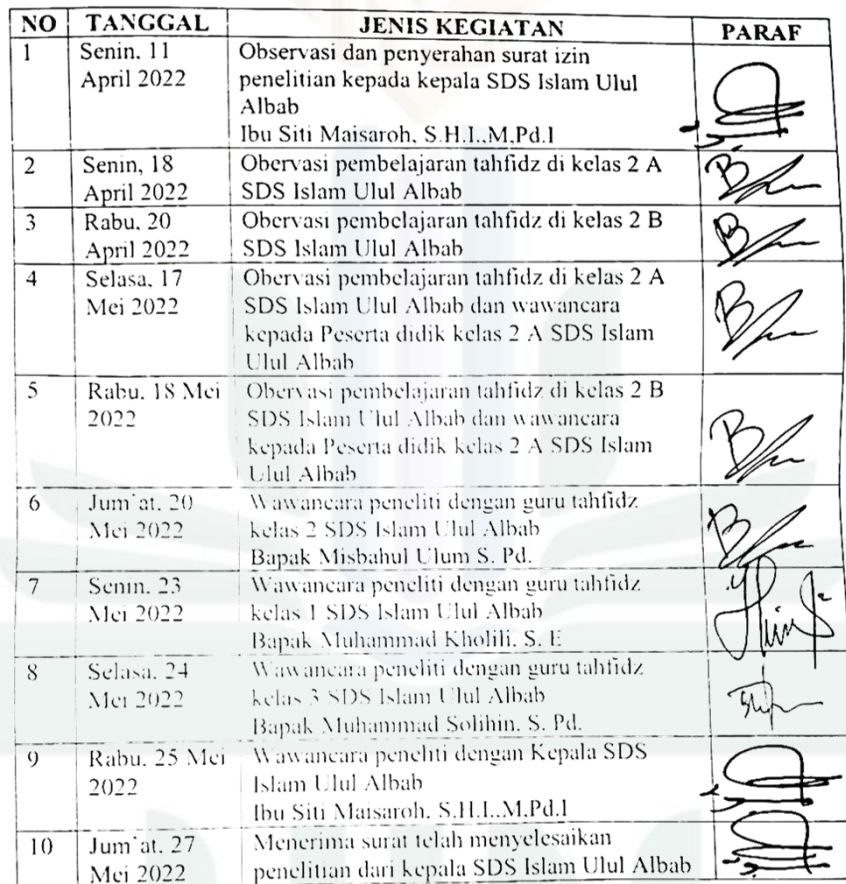 NO TANGGAL JENIS KEGIATAN PARAF
1 Senin, 11 Observasi dan penyerahan surat izin
April 2022 penelitian kepada kepala SDS Islam Ulul
Albab
Ibu Siti Maisaroh, S.H.I.,M,Pd.I
2 Senin, 18 Obervasi pembelajaran tahfidz di kelas 2 A
April 2022 SDS Islam Ulul Albab
3 Rabu, 20 Obervasi pembelajaran tahfidz di kelas 2 B
April 2022 SDS Islam Ulul Albab
4 Selasa, 17 Obervasi pembelajaran tahfidz di kelas 2 A
Mei 2022 SDS Islam Ulul Albab dan wawancara
kepada Peserta didik kelas 2 A SDS Islam
Ulul Albab
5 Rabu, 18 Mei Obervasi pembelajaran tahfidz di kelas 2 B
2022 SDS Islam Ulul Albab dan wawancara
kepada Peserta didik kelas 2 A SDS Islam
Ulul Albab
6 Jum'at, 20 Wawancara peneliti dengan guru tahfidz
Mei 2022 kelas 2 SDS Islam Ulul Albab
Bapak Misbahul Ulum S. Pd.
7 Senin, 23 Wawancara peneliti dengan guru tahfidz
Mei 2022 kelas 1 SDS Islam Ulul Albab
Bapak Muhammad Kholili, S. E
8 Selasa, 24 Wawancara peneliti dengan guru tahfidz
Mei 2022 kelas 3 SDS Islam Ulul Albab
Bapak Muhammad Solihin, S. Pd.
9 Rabu, 25 Mei Wawancara peneliti dengan Kepala SDS
2022 Islam Ulul Albab
Ibu Siti Maisaroh, S.H.I.,M,Pd.I
10 Jum'at, 27 Menerima surat telah menyelesaikan
Mei 2022 penelitian dari kepala SDS Islam Ulul Albab